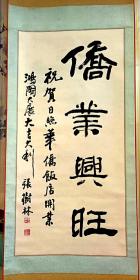 僑業興旺
祝賀日照華僑飯店開業
鴻圖大展大吉大利
張樹林